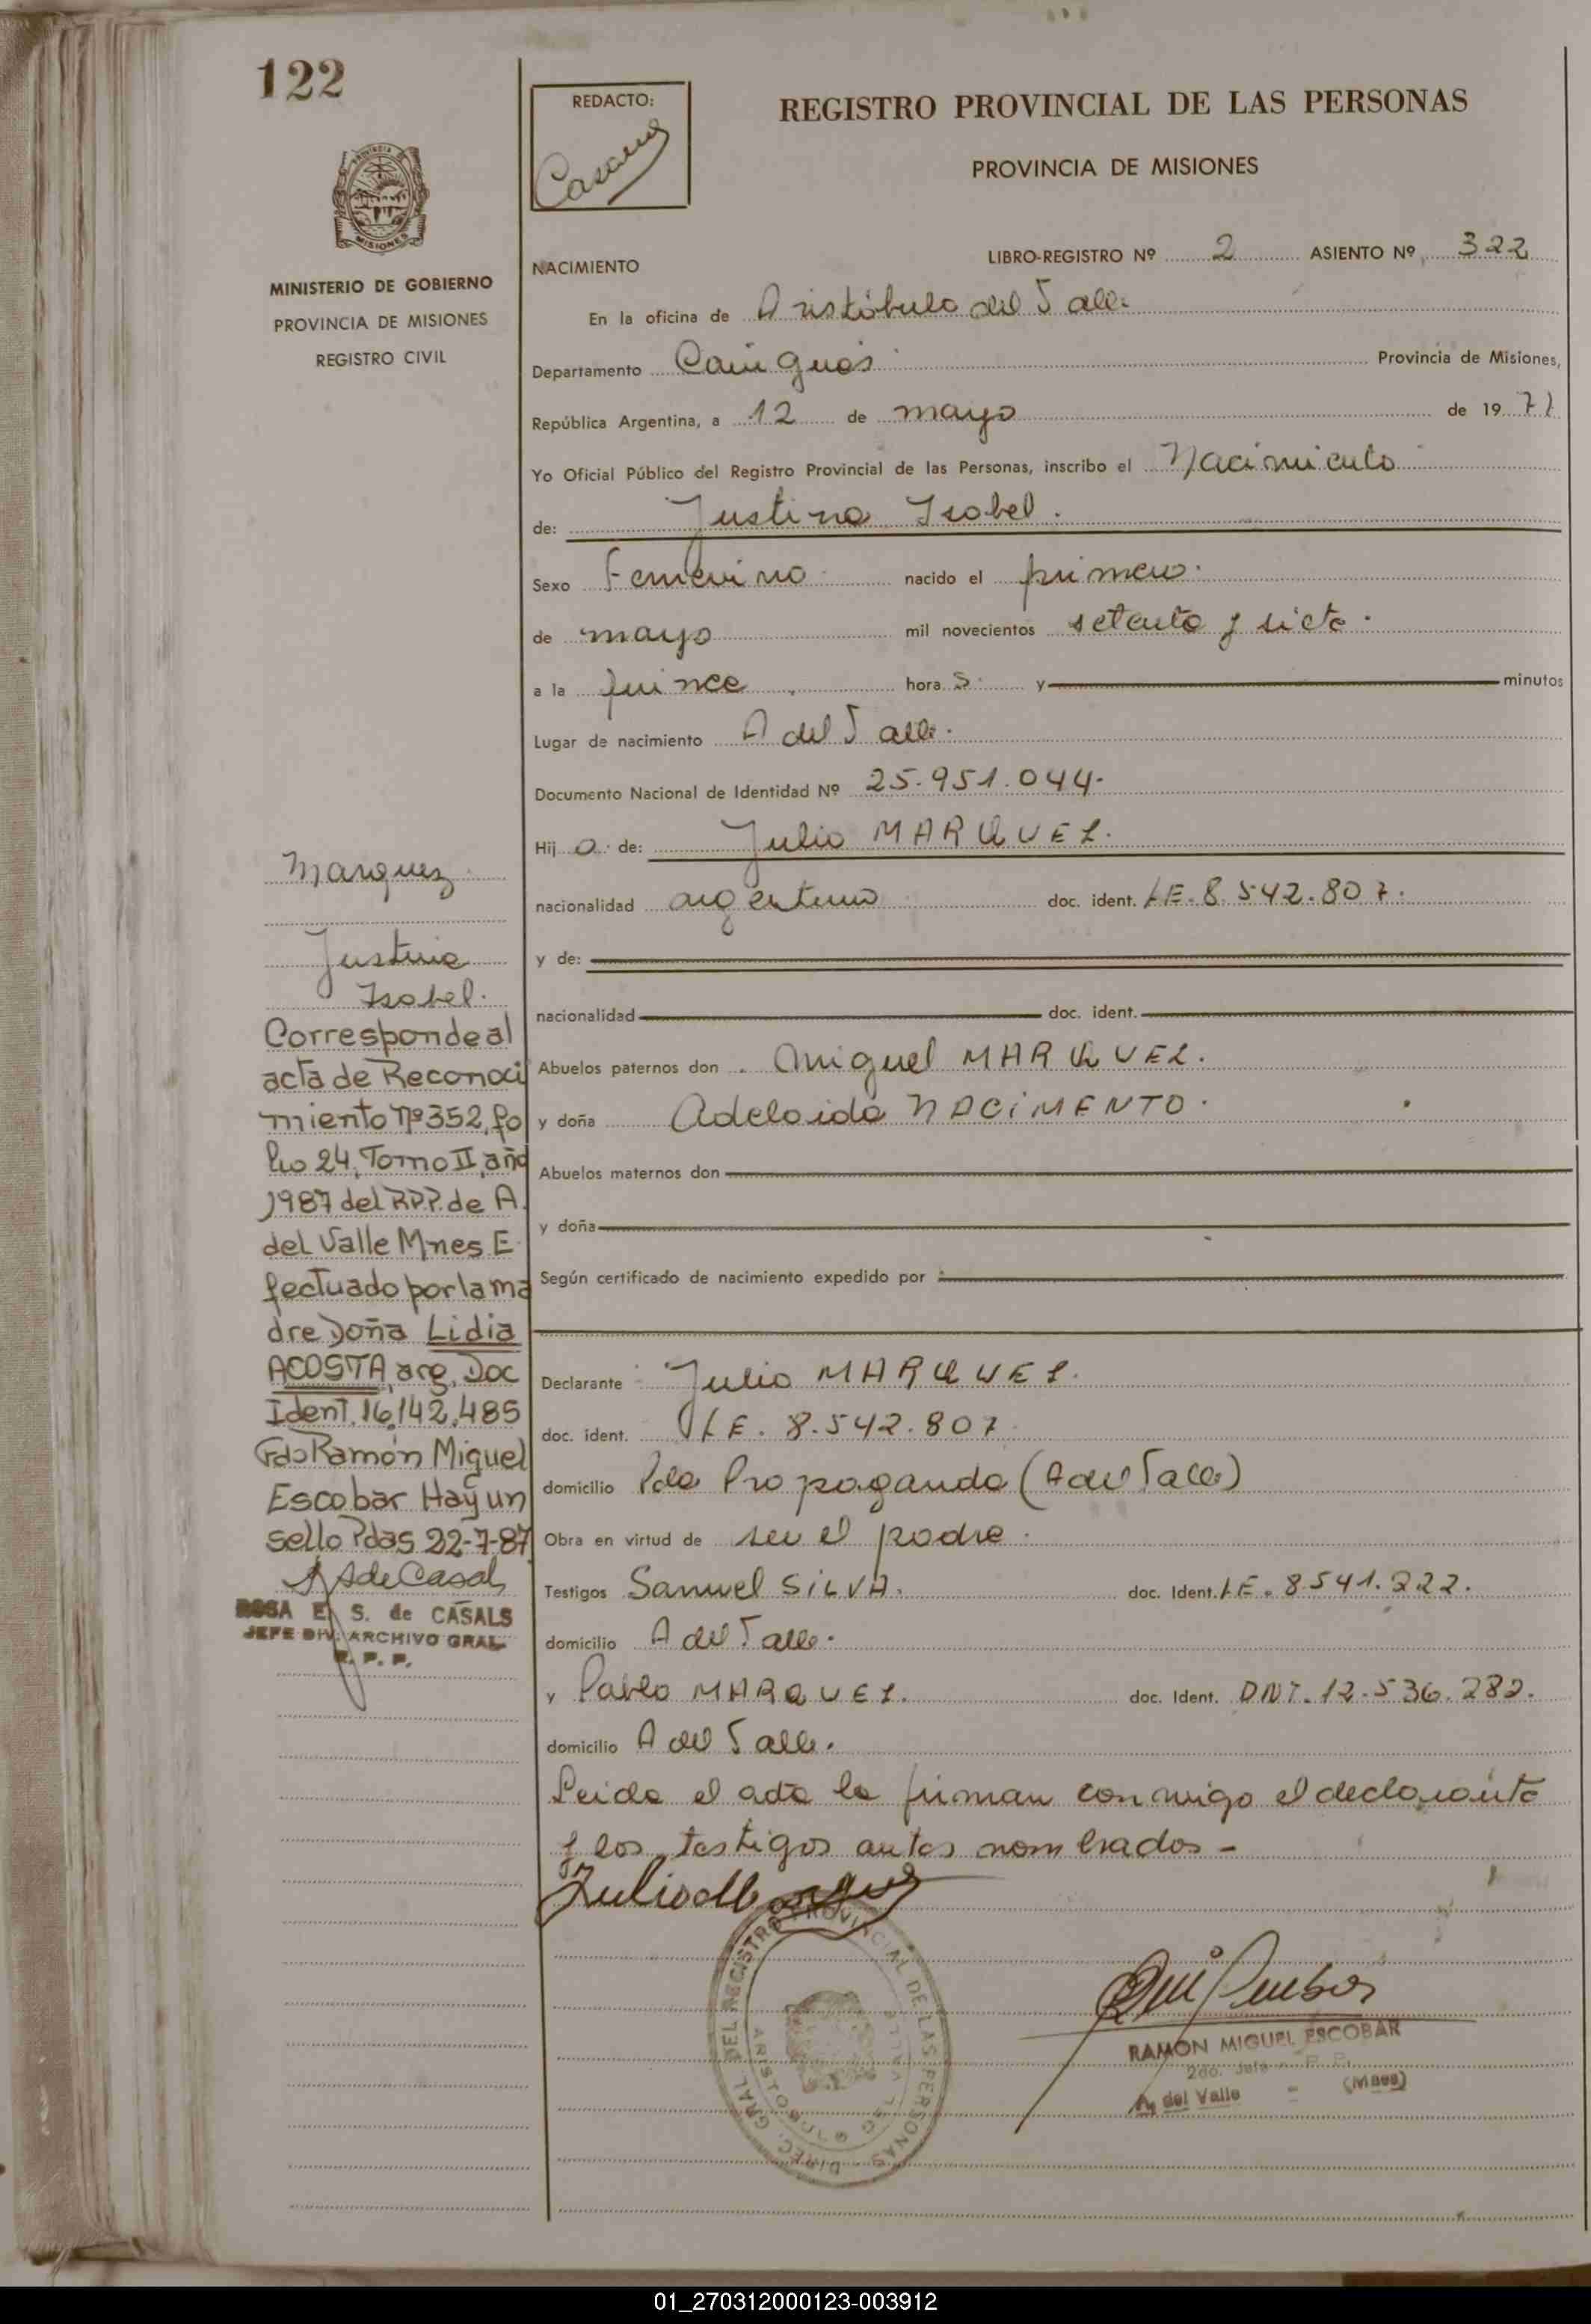 122
REDACTO:
REGISTRO PROVINCIAL DE LAS PERSONAS
PROVINCIA DE MISIONES
PROVINCIA DE
MISIONES
MINISTERIO DE GOBIERNO
PROVINCIA DE MISIONES
REGISTRO CIVIL
NACIMIENTO
LIBRO-REGISTRO Nº 2 ASIENTO Nº 322
En la oficina de Aristóbulo del Valle
Departamento Cainguás Provincia de Misiones,
República Argentina, a 12 de mayo de 19 77
Yo Oficial Público del Registro Provincial de las Personas, inscribo el Nacimiento
de: Justina Isabel.
Sexo Femenino nacido el primero.
de mayo mil novecientos setenta y siete.
a la quince hora s y minutos
Lugar de nacimiento A del Valle.
Documento Nacional de Identidad Nº 25.951.044.
Hij a de: Julio MARQUEZ.
nacionalidad argentino doc. ident. LE. 8.542.807.
y de:
nacionalidad doc. ident.
Abuelos paternos don Miguel MARQUEZ.
y doña Adelaida NACIMENTO.
Abuelos maternos don
y doña
Según certificado de nacimiento expedido por
Declarante Julio MARQUEZ.
doc. ident. LE. 8.542.807
domicilio Pdo Propaganda (A del Valle)
Obra en virtud de ser el padre.
Testigos Samuel SILVA. doc. Ident. LE. 8.541.222.
domicilio A del Valle.
y Pablo MARQUEZ. doc. Ident. DNI. 12.536.282.
domicilio A del Valle.
Leida el acta la firman conmigo el declarante
y los testigos antes nombrados -
Marquez
Justina
Isabel.
Corresponde al
acta de Reconoci
miento Nº 352, fo
lio 24, Tomo II, año
1987 del R.P.P. de A.
del Valle Mnes E
fectuado por la ma
dre Doña Lidia
ACOSTA, arg, Doc
Ident. 16,142,485
Fdo Ramón Miguel
Escobar Hay un
sello Pdas 22-7-87
ROSA E. S. de CASALS
JEFE DIV. ARCHIVO GRAL.
R. P. P.
Julio Marquez
DIREC. GRAL DEL REGISTRO PROVINCIAL DE LAS PERSONAS
ARISTOBULO DEL VALLE
RAMON MIGUEL ESCOBAR
2do. Jefe R. P. P.
A. del Valle - (Mnes)
01_270312000123-003912